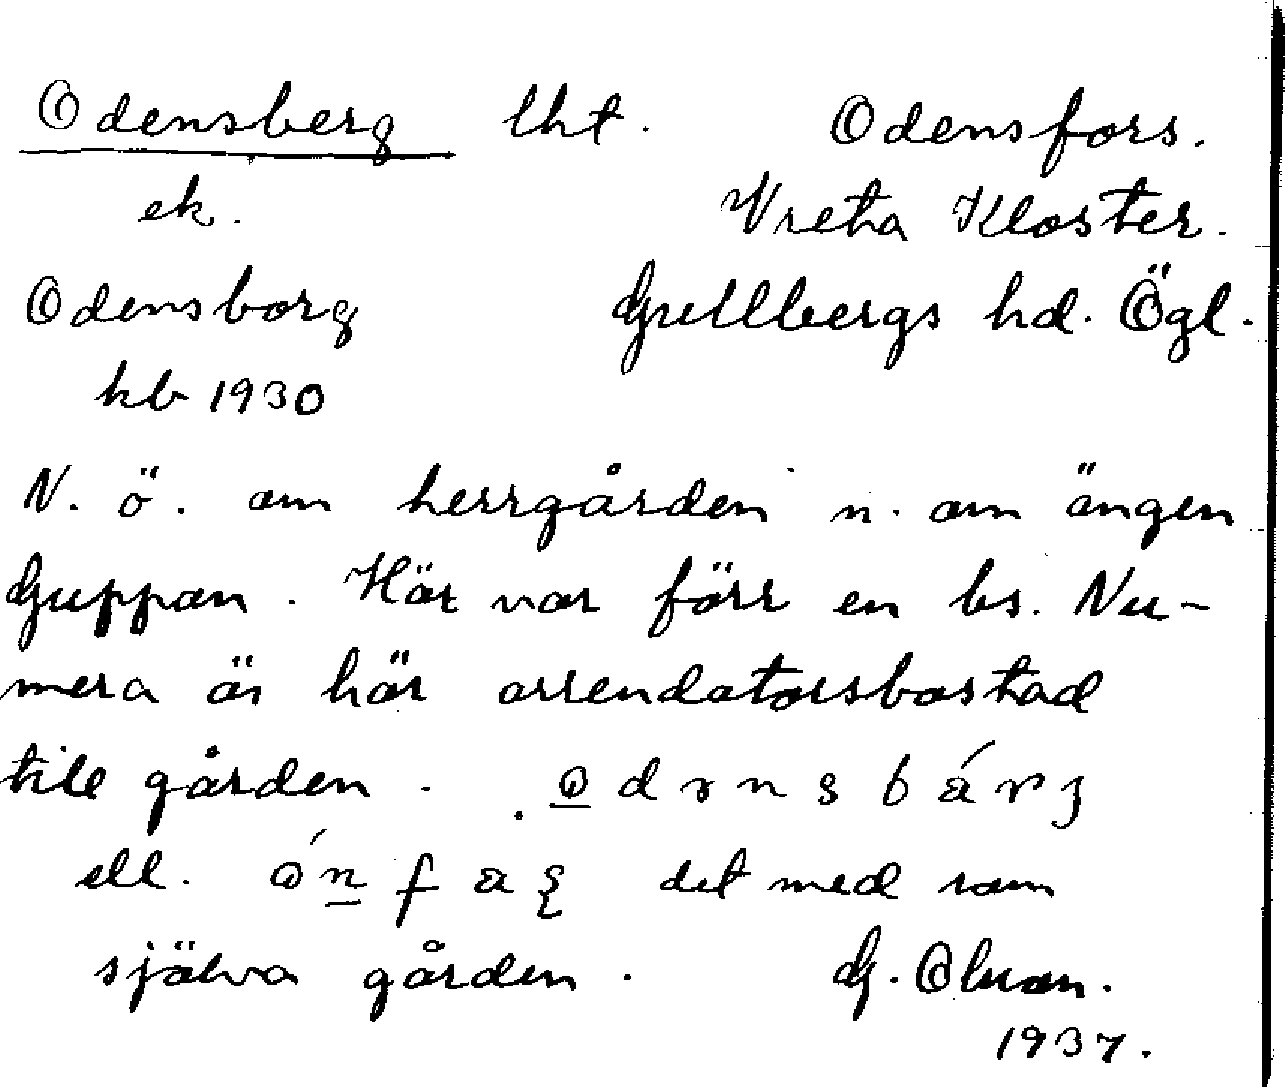 Odensberg lht. Odensfors.
ek. Vreta Kloster.
Odensborg Gullbergs hd. Ögl.
kb 1930
N. ö. om herrgården n. om ängen
Guppan. Här var förr en bs. Nu-
mera är här arrendatorsbostad
till gården.
ell. det med som
själva gården. G.
1937.